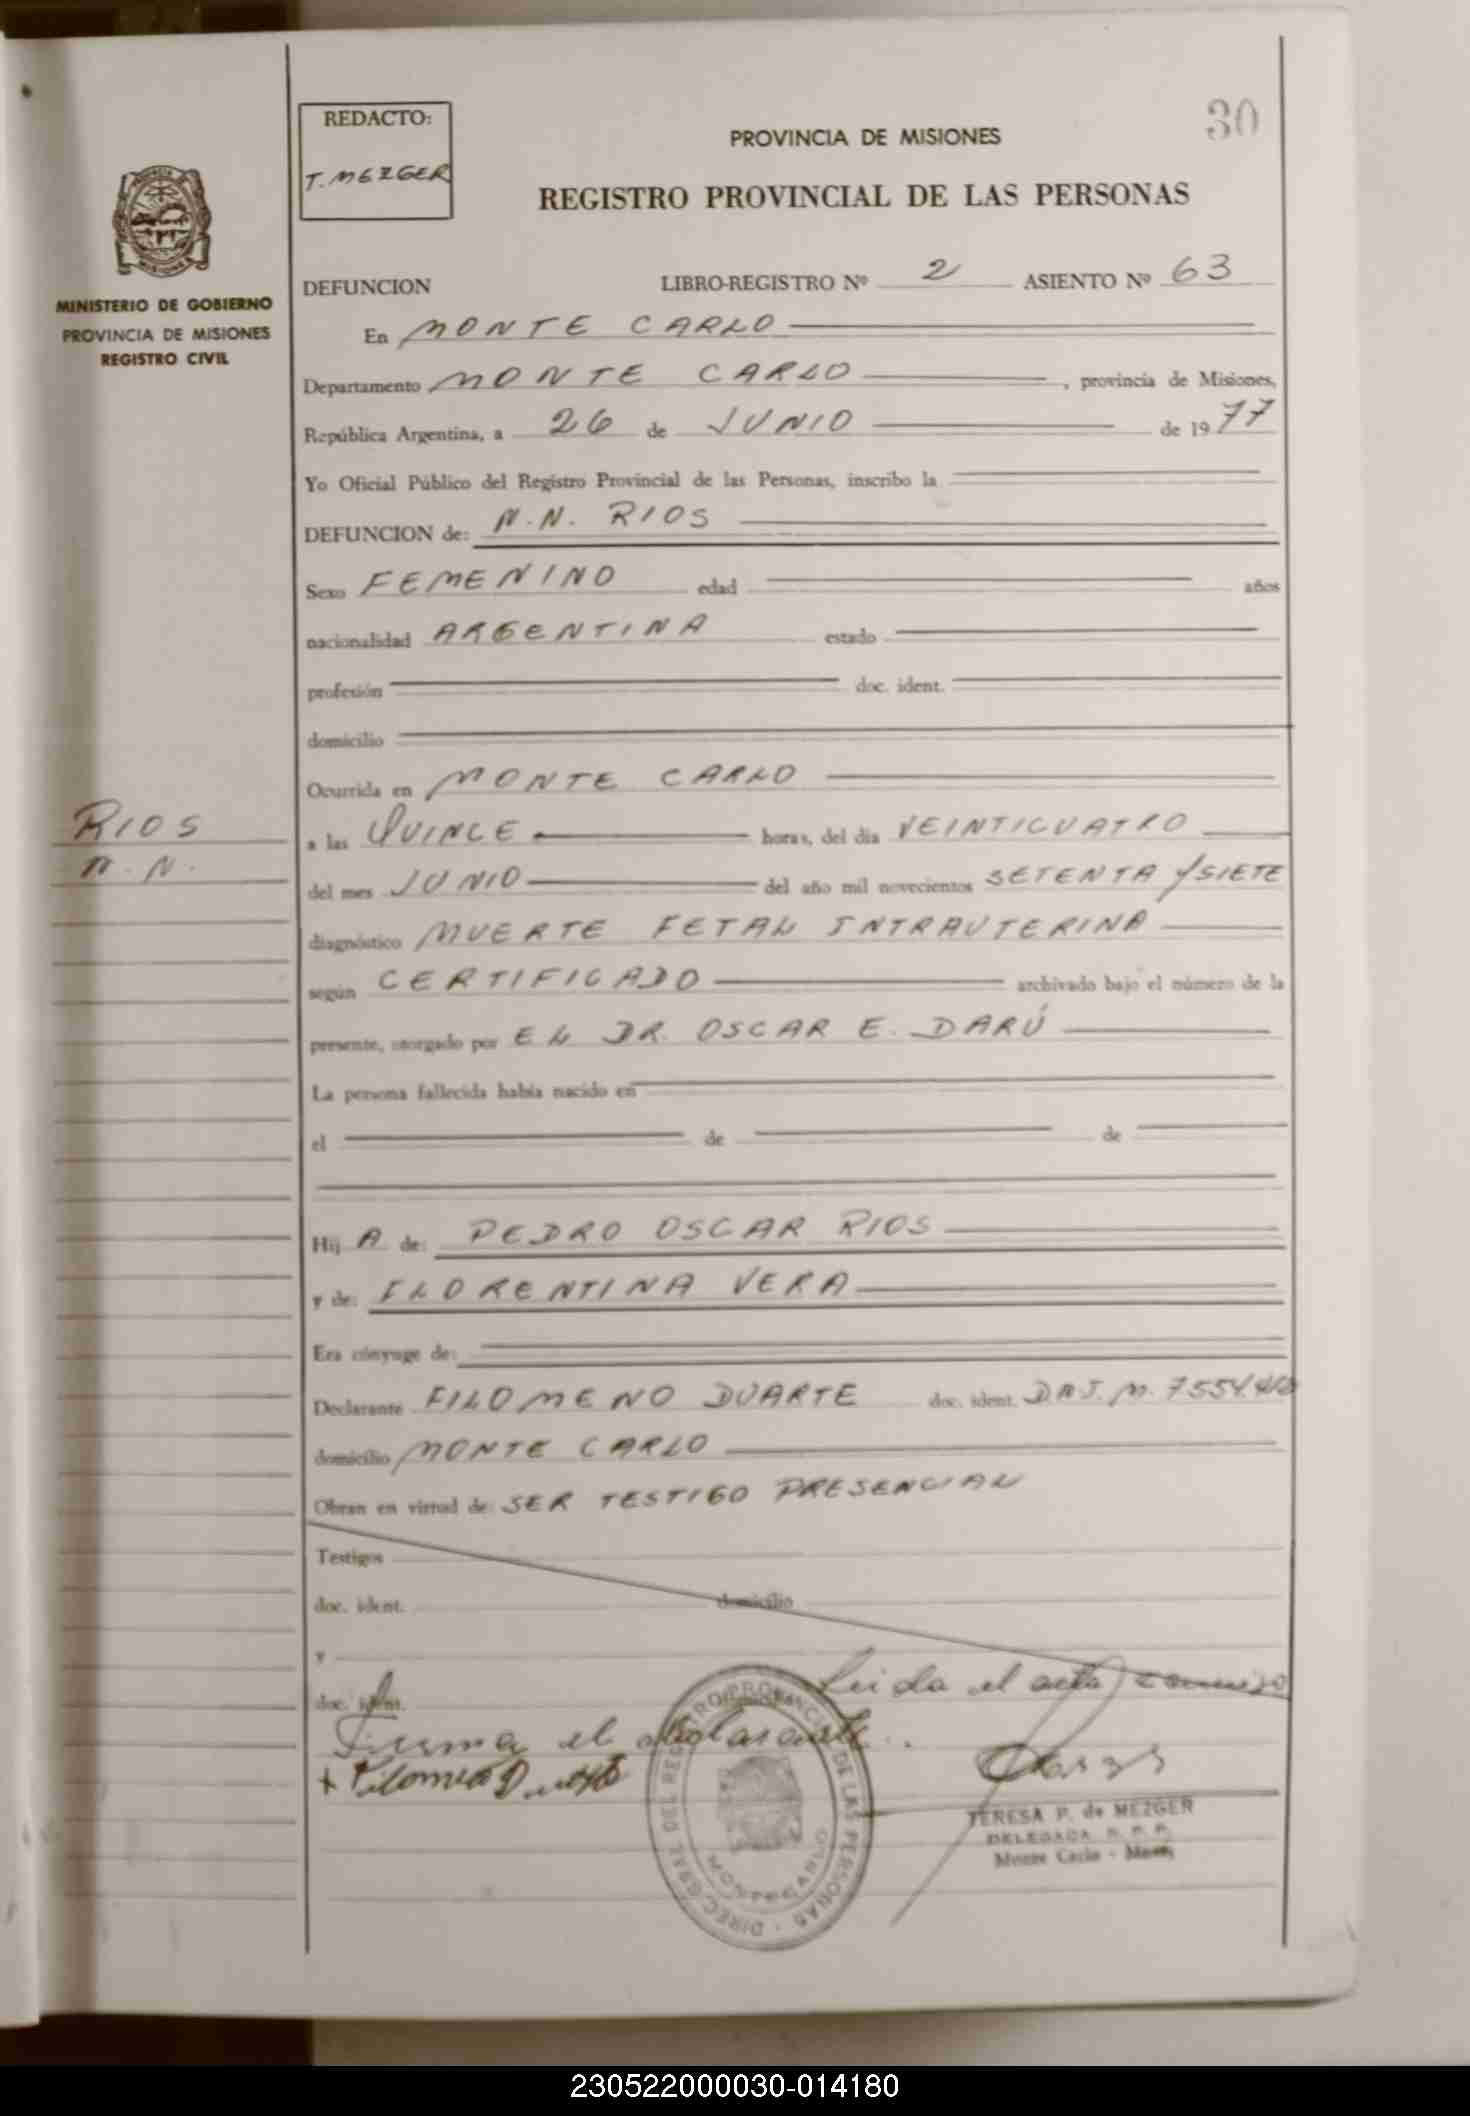 30
REDACTO:
T. MEZGER
PROVINCIA DE MISIONES
REGISTRO PROVINCIAL DE LAS PERSONAS
MINISTERIO DE GOBIERNO
PROVINCIA DE MISIONES
REGISTRO CIVIL
DEFUNCION LIBRO-REGISTRO Nº 2 ASIENTO Nº 63
En MONTE CARLO
Departamento MONTE CARLO , provincia de Misiones,
República Argentina, a 26 de JUNIO de 1977
Yo Oficial Público del Registro Provincial de las Personas, inscribo la
DEFUNCION de: N.N. RIOS
Sexo FEMENINO edad años
nacionalidad ARGENTINA estado
profesión doc. ident.
domicilio
Ocurrida en MONTE CARLO
RIOS
N.N.
a las QUINCE horas, del día VEINTICUATRO
del mes JUNIO del año mil novecientos SETENTA Y SIETE
diagnóstico MUERTE FETAL INTRAUTERINA
según CERTIFICADO archivado bajo el número de la
presente, otorgado por EL DR. OSCAR E. DARÚ
La persona fallecida había nacido en
el de de
Hij A de: PEDRO OSCAR RIOS
y de: FLORENTINA VERA
Era cónyuge de:
Declarante FILOMENO DUARTE doc. ident. M. 7554.
domicilio MONTE CARLO
Obran en virtud de: SER TESTIGO PRESENCIAL
Testigos
doc. ident. domicilio
y
doc. ident. Leida el acta
Firma el declarante.
DIREC. GRAL. DEL REGISTRO PROVINCIAL DE LAS PERSONAS
MONTECARLO
TERESA P. de MEZGER
DELEGADA R. P. P.
Monte Carlo - Mnes.
230522000030-014180